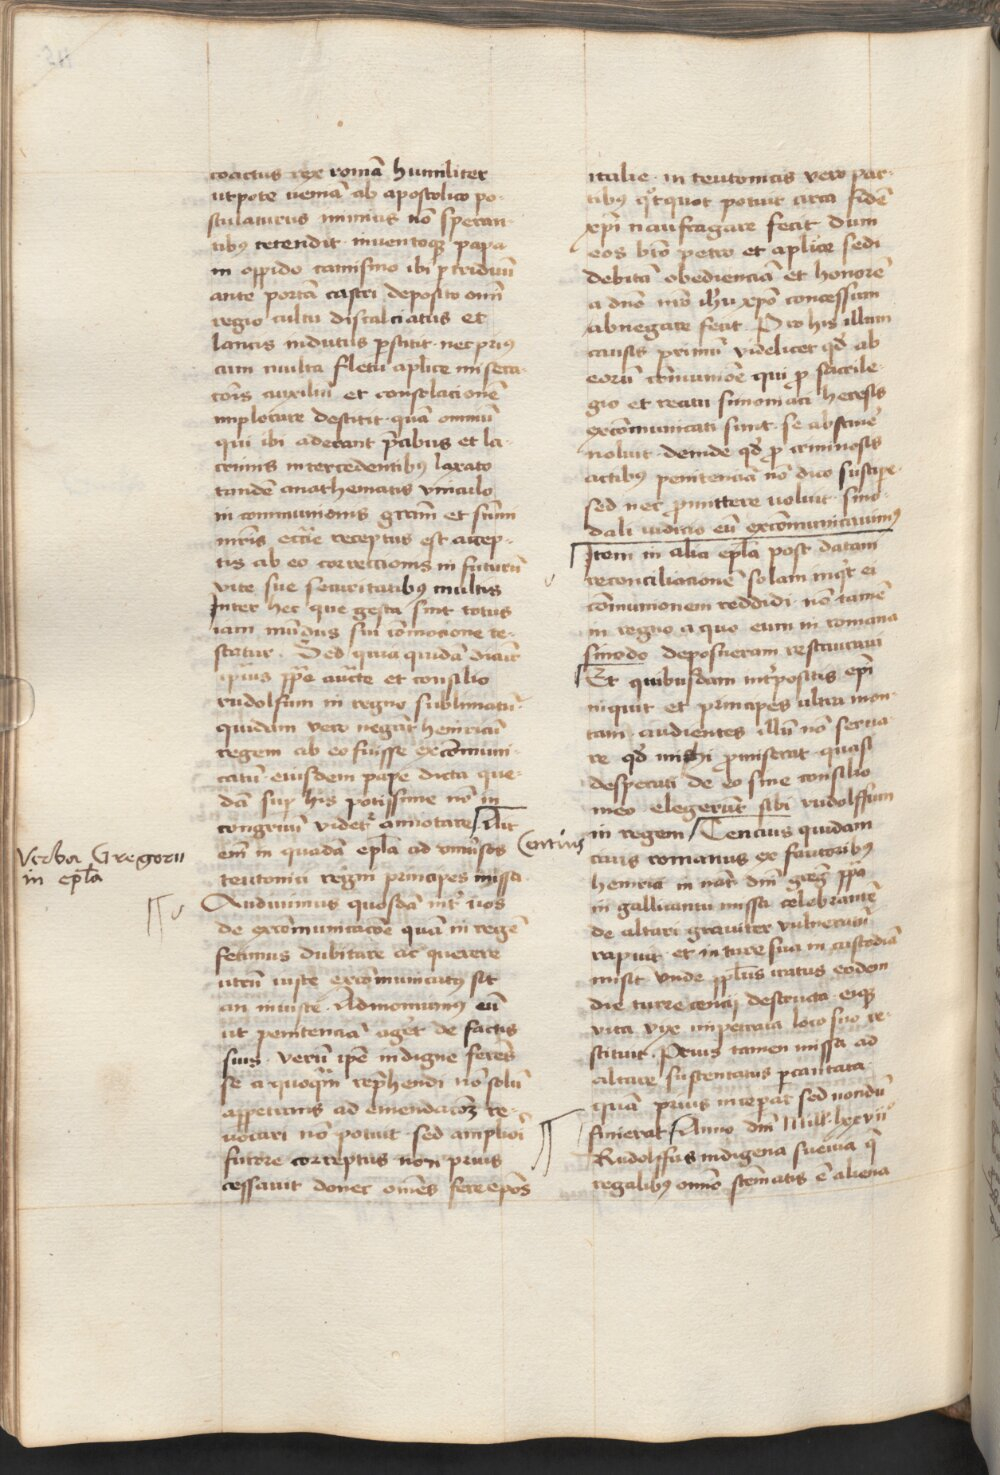 coactus rex romā humiliter
utpote veniā ab apostolico po-
stulaturus nimius nō speran-
tibꝰ tetendit · inventoqꝫ papa
in oppido camisino ibi ꝑ triduū
ante portā castri deposito omī
regio cultu discalciatus et
laneis indutus ꝑstitit · nec priꝰ
cum multa fletu aplice misera-
cōis auxiliū et consolacionē
implorare destitit · quā omniū
qui ibi aderant p̄cibus et la-
crimis intercedentibꝰ laxato
tandē anathematis vinculo
in communionis grām et sinū
mr̄is eccīe receptus est accep-
tis ab eo correctionis in futurū
vite sue securitatibꝰ multis
Inter hec que gesta sint totus
iam mūdus sui cōmocione te-
statur · Sed quia quidā dicūt
ipsius ꝓpe aucte et consilio
rudolfum in regno sublimatū ·
quidam vero negāt heinricū
regem ab eo fuisse excōmuni-
catū · eiusdem pape dicta que-
dā suꝑ his potissime nō in
congruū videtꝛ annotare / Ait
em̄ in quadā epl̄a ad vniūsos
teutonici regni principes missa ·
Audivimus quosdā int̄ vos
de excōmunicacōe quā in regē
fecimus dubitare ac querere
utrū iuste excōmunicatꝰ sit
an iniuste · Admonuimus eū
ut penitenciā agēt de factis
suis · verū ipē indigne ferēs
se a quoqm̄ rep̄hendi nō solū
appetitus ad emendacōꝫ re-
vocari nō potuit sed amplioī
furore correptus non prius
cessavit donec om̄es fere ep̄os
Verba Gregorii
in epl̄a
italie · in teutonicis vero par-
tibꝰ qͦtquot potuit circa fidē
xp̄i naufragare fecit dum
eos bt̄o petro et aplice sedi
debitā obedienciā et honorē
a dn̄o nr̄o ih̄u xp̄o concessum
abnegare fecit · Pro his illum
causis primū videlicet qđ ab
eorū cōmunione qui ꝓ sacrile-
gio et reatu simoniaci heresis
excōmunicati sunt · se abstinē
noluit · deinde qđ ꝓ criminosis
actibꝰ penitenciā nō dico suscipe
sed nec ꝓmittere voluit · sino-
dali iudicio eū excōmunicavimꝰ
Item in alia epl̄a post datam
reconciliacionē solam inq̄t ei
cōmunionem reddidi · nō tamē
in regno a quo eum in romana
sinodo deposueram restauravi
Et quibusdam int̄positis ep̄i
inquit et principes ultra mon-
tani audientes illū nō serva-
re qđ michi ꝓmiserat · quasi
desperati de eo sine consilio
meo elegerūt sibi rudolffum
in regem / Cencius quidam
Cencius
civis romanus ex fautoribꝰ
heinrici in nat̄ dn̄i greḡ pp̄a
in gallicantu missa celebrantē
de altari graviter vulneratū
rapuit · et in turre sua in custodiā
misit · vnde pp̄lus iratus eodem
die turre cencij destructa · eiqꝫ
vita vix impetrata loco suo re-
stituit · Prius tamen missa ad
altare sustentatus ꝑcantata ·
quā prius inceperat sed nondū
finierat / Anno dn̄i Mill · lxxvijͦ
Rudolffus indigena suevia q̄
regalibꝰ omīo stēmatis ē aliena